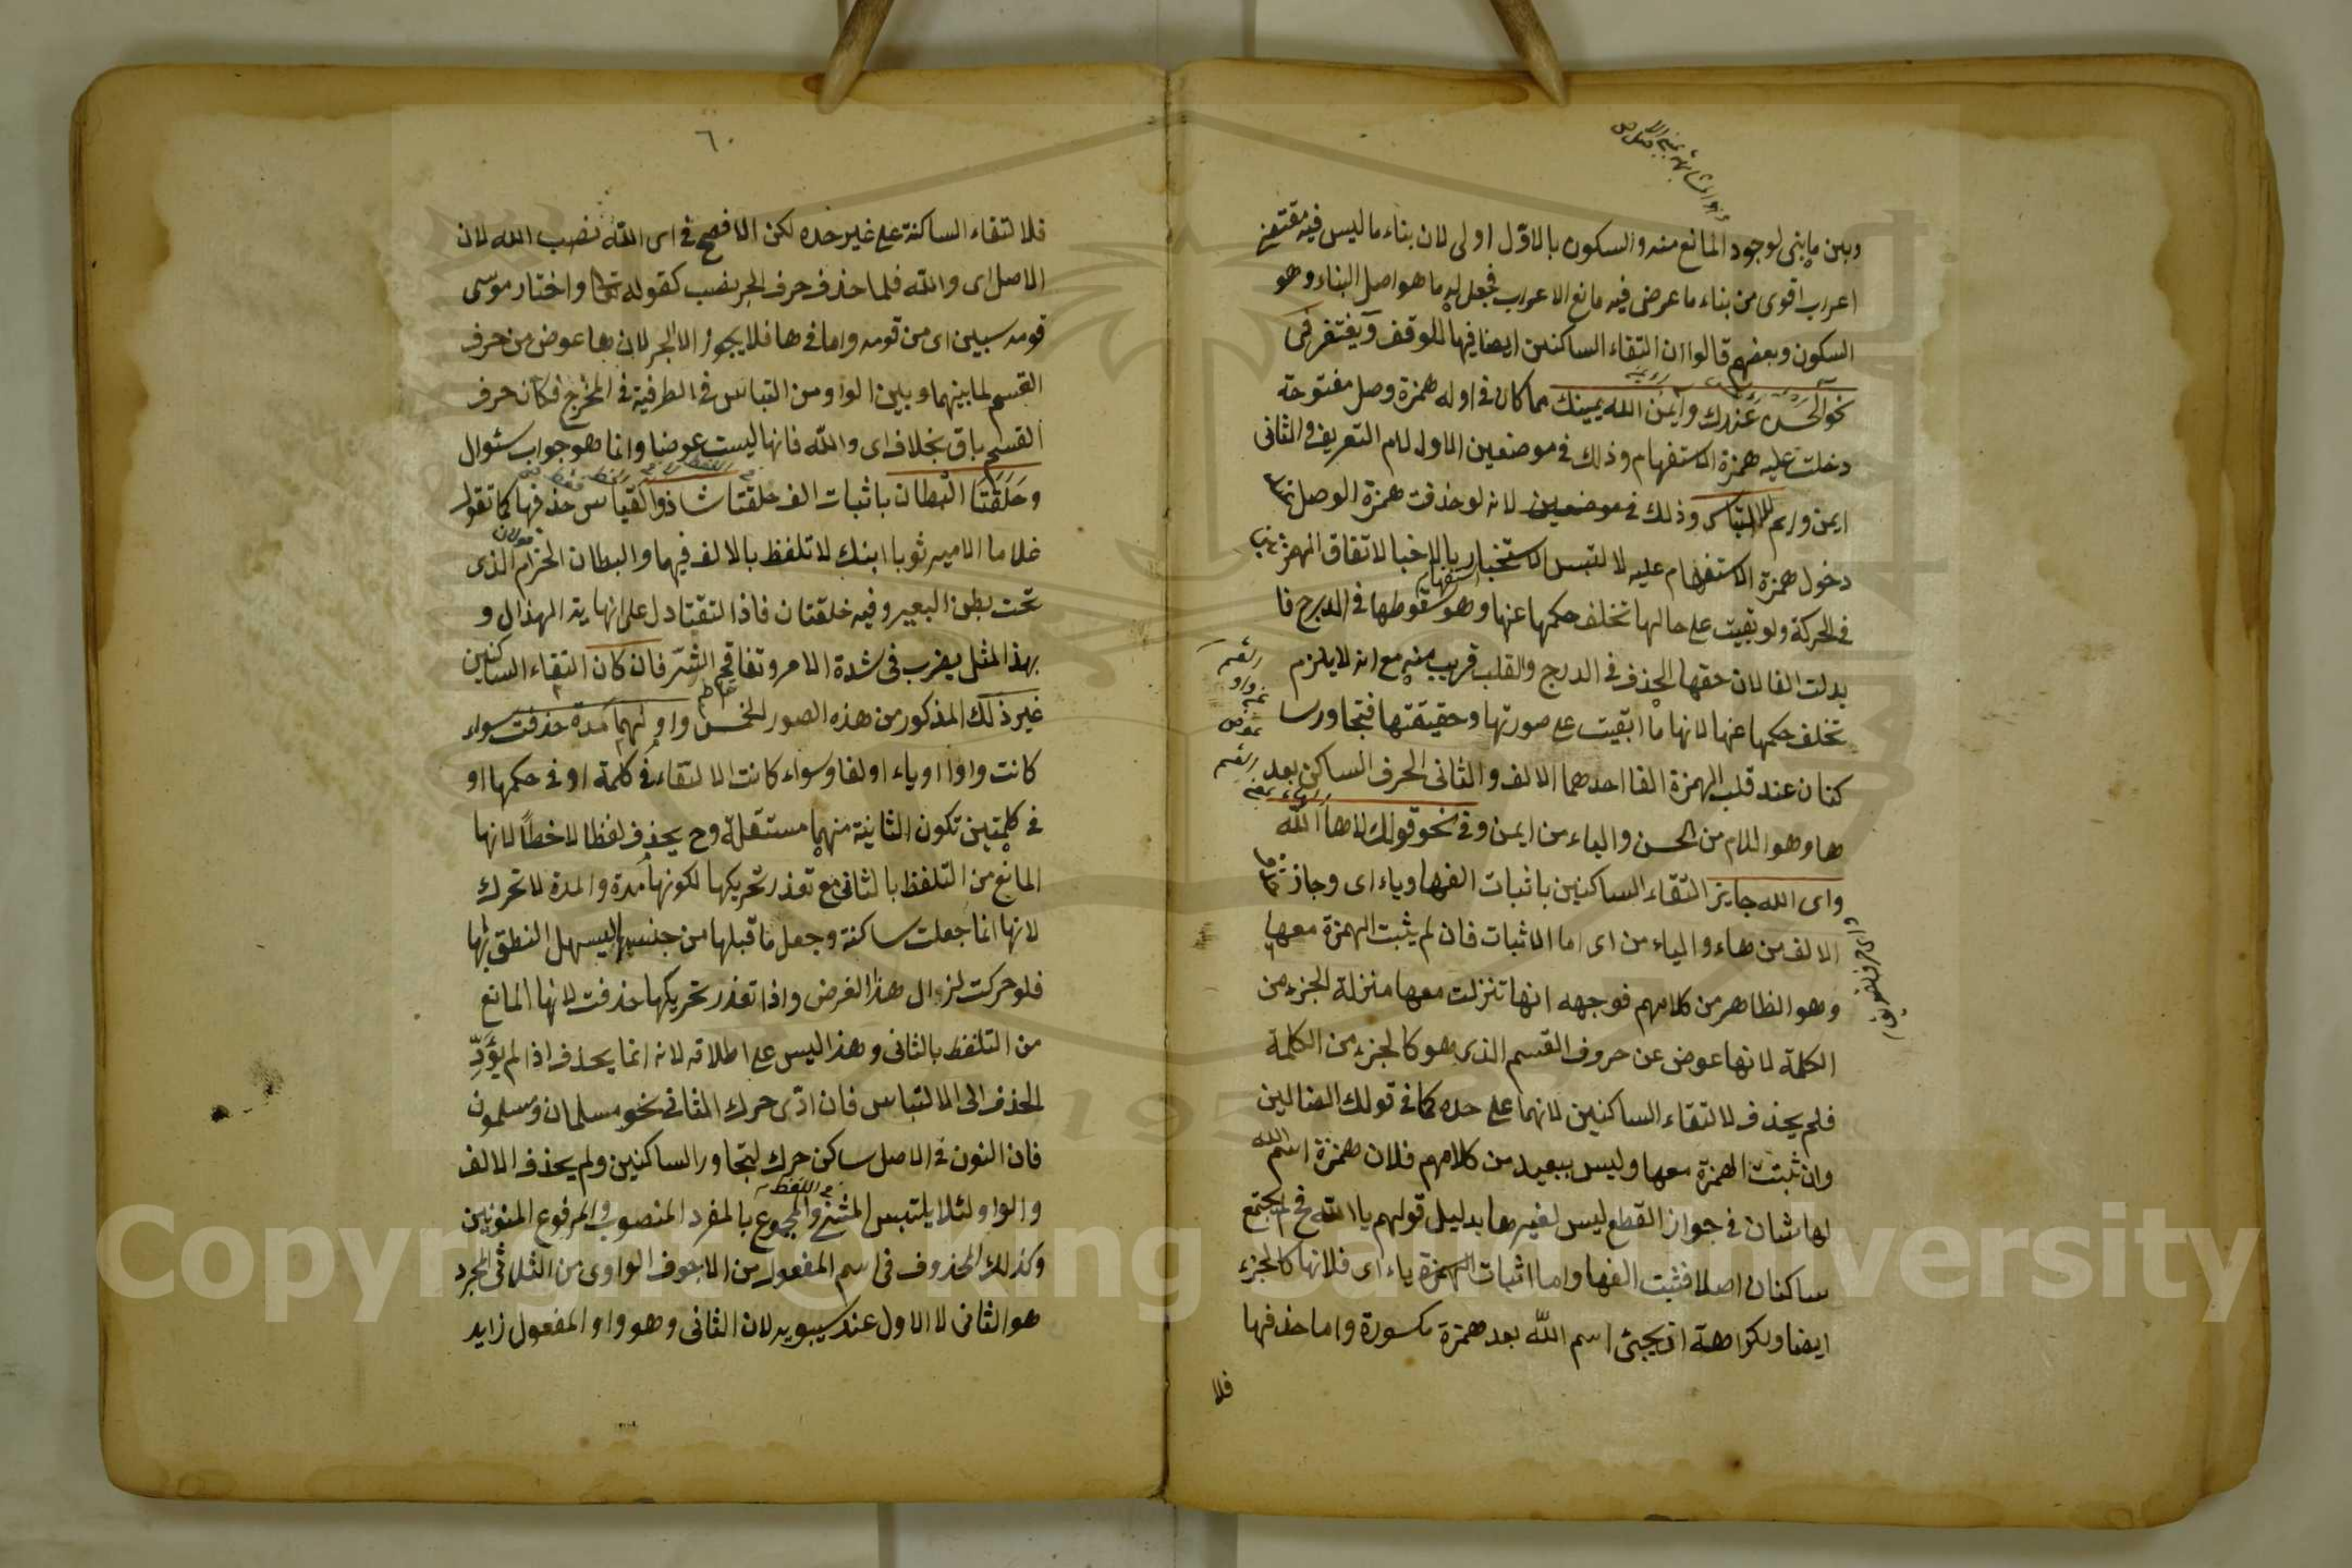 وبين ما بنى لوجود المانع منه والسكون بالاول اولى لان بناء ما ليس فيه مقتضى
اعراب اقوى من بناء ما عرض فيه مانع الاعراب فجعل له ما هو اصل البناء وهو
السكون وبعضهم قالوا ان التقاء الساكنين ايضا فيها للوقف ويغتفر في
نحو آلحسن عندك وآيمن الله يمينك مما كان في اوله همزة وصل مفتوحة
دخلت عليه همزة الاستفهام وذلك في موضعين الاول لام التعريف والثاني
ايمن وايم للالتباس وذلك في موضعين لانه لو حذفت همزة الوصل
دخول همزة الاستفهام عليه لالتبس الاستخبار بالاخبار لاتفاق الهمزتين
في الحركة ولو بقيت على حالها تخلف حكمها عنها وهو سقوطها في الدرج فا
بدلت الفا لان حقها الحذف في الدرج والقلب قريب منه مع انه لا يلزم
تخلف حكمها عنها لانها ما ابقيت على صورتها وحقيقتها فتجاور سا
كنان عند قلب الهمزة الفا احدهما الالف والثاني الحرف الساكن بعد
ها وهو اللام من الحسن والياء من ايمن وفي نحو قولك لاها الله
واى الله جايز التقاء الساكنين باثبات الف ها وياء اى وجاز
الالف من هاء والياء من اى اما الاثبات فان لم يثبت الهمزة معها
وهو الظاهر من كلامهم فوجهه انها تنزلت معها منزلة الجزء من
الكلمة لانها عوض عن حروف القسم الذى هو كالجزء من الكلمة
فلم يحذف لالتقاء الساكنين لانهما على حده كما في قولك الضالين
وان ثبتت الهمزة معها وليس ببعيد من كلامهم فلان همزة اسم الله
لها شان في جواز القطع ليس لغيرها بدليل قولهم يا الله فح لم يجتمع
ساكنان اصلا فثبت الفها واما اثبات الهمزة ياء اى فلانها كالجزء
ايضا ولكراهة ان يجئ اسم الله بعد همزة مكسورة واما حذفها
فلا
٦٠
فلالتقاء الساكنة على غير حده لكن الافصح في اى الله نصب الله لان
الاصل اى والله فلما حذف حرف الجر نصب كقوله تعالى واختار موسى
قومه سبعين اى من قومه واما في ها فلا يجوز الا الجر لان ها عوض من حرف
القسم لما بينهما وبين الواو من التباس في الطرفية في المخرج فكان حرف
القسم باق بخلاف اى والله فانها ليست عوضا وانما هو جواب سئوال
وحلقتا البطان باثبات الف حلقتا شاذ والقياس حذفها كما تقول
غلاما الامير ثوبا ابنك لا تلفظ بالالف فيهما والبطان الحزام الذى
تحت بطن البعير وفيه حلقتان فاذا التقتا دل على نهاية الهزال و
بهذا المثل يضرب في شدة الامر وتفاقم الشر فان كان التقاء الساكنين
غير ذلك المذكور من هذه الصور الخمس واولهما مدة حذفت سواء
كانت واوا او ياء او الفا وسواء كانت الالتقاء في كلمة او في حكمها او
في كلمتين تكون الثانية منهما مستقلة وح يحذف لفظا لا خطا لانها
المانع من التلفظ بالثاني مع تعذر تحريكها لكونها مدة والمدة لا تحرك
لانها انما جعلت ساكنة وجعل ما قبلها من جنسها ليسهل النطق بها
فلو حركت لزال هذا الغرض واذا تعذر تحريكها حذفت لانها المانع
من التلفظ بالثاني وهذا ليس على اطلاقه لانه انما يحذف اذا لم يؤدِّ
الحذف الى الالتباس فان ادّى حرك الثاني نحو مسلمان ومسلمون
فان النون في الاصل ساكن حرك لتجاور الساكنين ولم يحذف الالف
والواو لئلا يلتبس المثنى والمجموع بالمفرد المنصوب والمرفوع المنونين
وكذلك المحذوف في اسم المفعول من الاجوف الواوى من الثلاثى المجرد
هو الثانى لا الاول عند سيبويه لان الثانى وهو واو المفعول زايد
Copyright © King Saud University
195